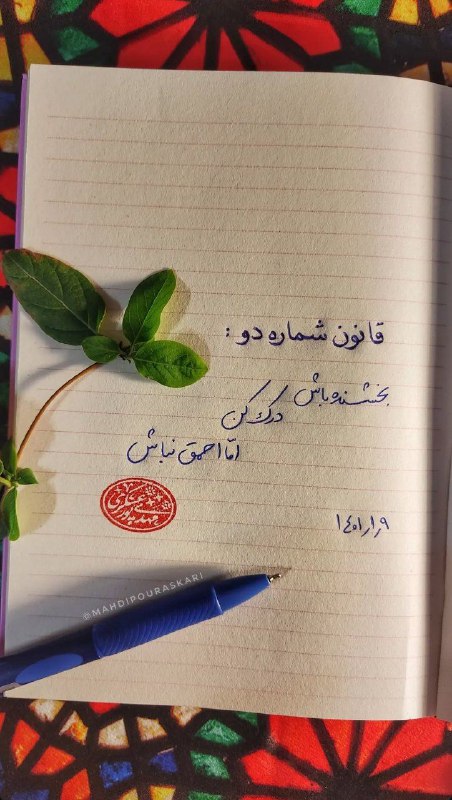 قانون شماره دو :
بخشنده باش
درک کن
امّا احمق نباش
۱۴۰۱٫۱٫۹
@MAHDIPOURASKARI